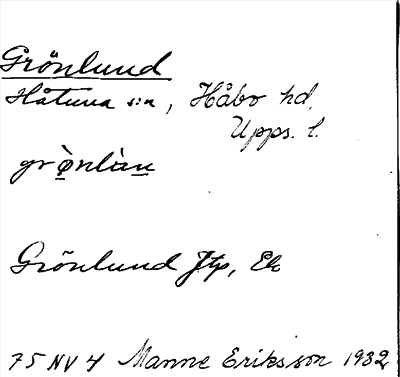 Grönlund
Håtuna s:n, Håbo hd.
Upps. l.
grø̀nlàn
Grönlund Jtp, Ek
75 NV 4 Manne Eriksson 1932